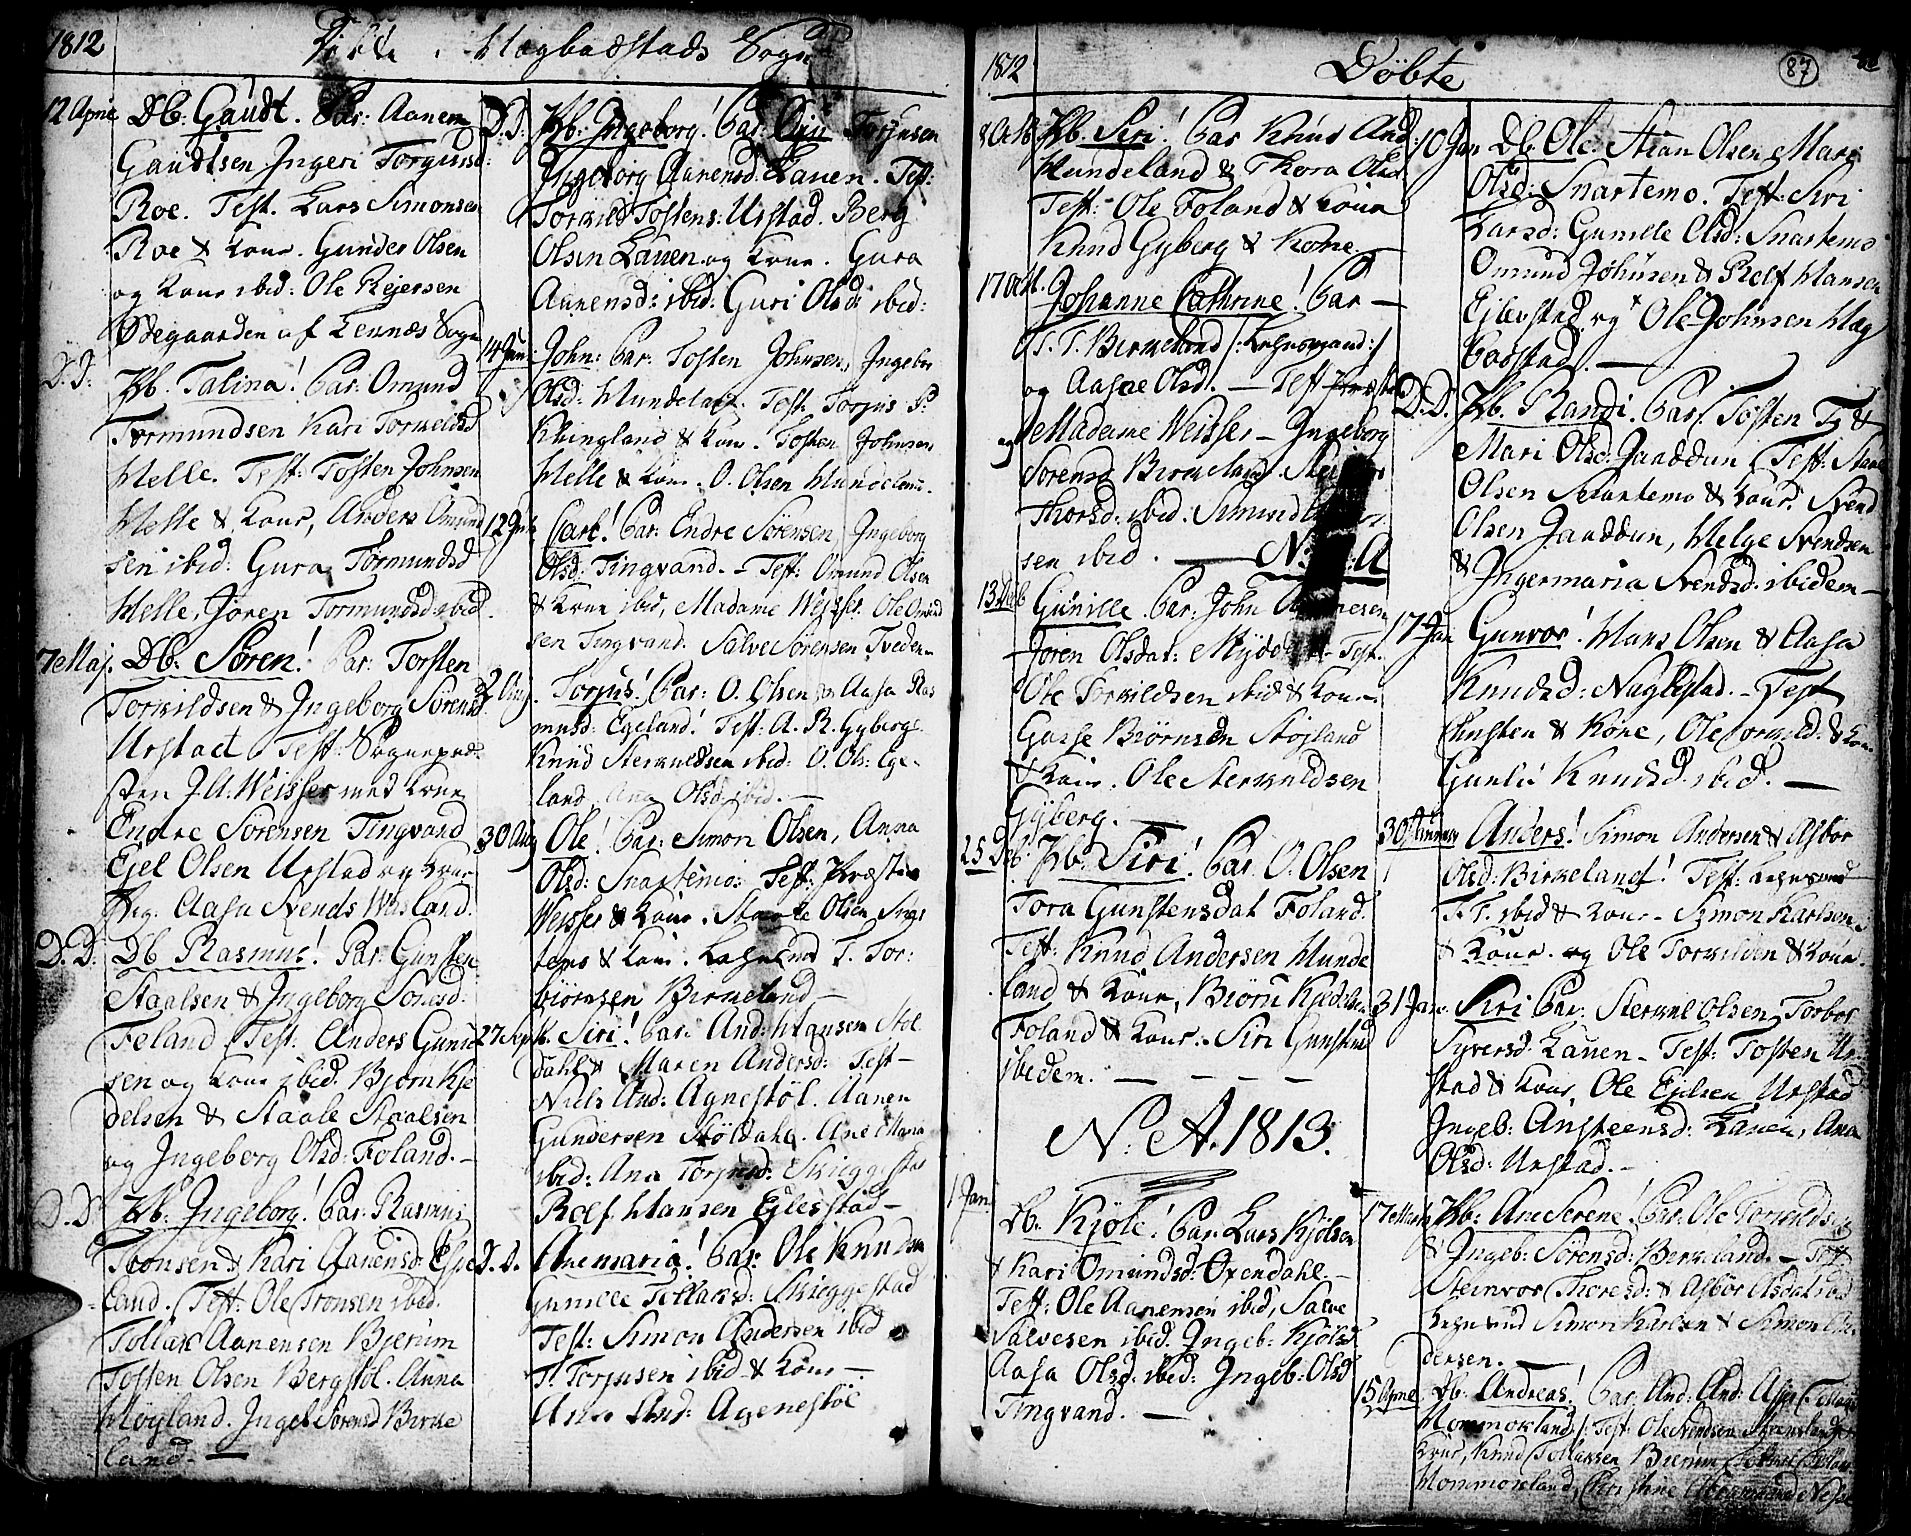 1812
Døbte i Hægbadstads Sogn
12 Aprie Db. Gaudt. Par: Aanen
Gaudtsen Ingeri Torgiusd:
Roe. Test. Lars Simonsen
Roe & Kone. Gunder Olsen
og Kone ibid: Ole Rejersen
Ødegaarden af Lennæs Sogn
D.D: Hb. Talina! Par: Omund
Tormundsen Kari Torkeldsd
Helle. Test: Tosten Johnsen
Helle & Kone, Anders Omund
sen ibid: Gura Tormundsd
Helle, Jören Tormundsd ibid.
7e Maj. Db. Sören! Par: Torsten
Torkildsen & Ingeborg Sörensd.
Urstad. Test: Sognepræ-
sten J.U. Weisser med Kone
Endre Sörensen Tingvand
Ejel Olsen Urstad og Kone
Aasa Svends Wasland.
D.D: Db Rasmus! Par: Gunsten
Staalsen & Ingeborg Jonasd.
Foland. Test: Anders Guns
sen og Kone ibid. Bjorn Kje
delsen & Staale Staalsen
og Ingeborg Olsd: Foland.
D.D Hb. Ingeborg! Par: Rasmus
Tronsen & Kari Aanensd: Espe
land. Test: Ole Tronsen ibid.
Tollak Aanensen Bjerum
Tosten Olsen Bergstöl. Anna
Höyland. Ingeb Sörensd Birke
land.
D.D: Hb. Ingeborg! Par: Torjusen
Ingeborg Aanensd: Lauen. Test:
Torkild Tostens: Urstad. Berg
Olsen Lauen og Kone. Gura
Aanensd: ibid: Guri Olsd: ibid:
14 Jun: John: Par: Tosten Johnsen, Ingebor
Olsd: Hundeland. Test. Torjus P.
Klungland & Kone. Tosten Johnsen
Helle & Kone. O. Olsen Hundeland.
12 Carl! Par: Endre Sörensen, Ingeborg
Olsd: Tingvand. - Test: Omund Olsen
& Kone ibid, Madame Weisser. Ole Omund
sen Tingvand. Salve Sörensen Tveden.
2 Aug. Torjus! Par: O. Olsen & Aasa Ras
musd: Egeland! Test: A. R. Gyberg.
Knud Sterkuldsen ibid: O. Ols: Ege-
land, Ana Olsd: ibid. —
30 Aug Ole! Par: Simon Olsen, Anna
Olsd: Snartemo: Test: Præsten
Weisser & Kone. Staale Olsen Snar
temo & Kone. Lensmd T. Tor:
björnsen Birkeland —
27 Sept. Siri! Par: And: Hansen Stöl
dahl & Maren Andersd: Test—
Niels And: Agnestöl. Aanen
Gundersen Stöldahl. Ane Maria
ibid: Ana Torjusd: Skieggestad
Rolf Hansen Ejlesstad—
D.D. Anemaria! Par: Ole Knudsen
Gunille Tollaksd: Skieggestad
Test: Simon Andersen ibid
T. Torjusen ibid & Kone—
Ane And: Agenestöl
1812 Döbte 87
8 Octb Hb. Siri! Par Knud And
Hundeland & Thora Olsd.
Test: Ole Foland & Kone
Knud Gyberg & Kone.
17 Octb. Johanne Cathrine! Par—
T. T. Birkeland /: Lehnsmand:/
og Aasne Olsd. — Test Præsten
og Madame Weisser — Ingeborg
Sörensd Birkeland.
Thorsd: ibid: Simund
sen ibid. —
13 Gunille. Par: John
Jören Olsdat: Mydö Test.
Ole Torkildsen ibid & Kone
Gasse Biörnsen Stöjland
& Kone. Ole Sterkuldsen
Gyberg. —
25 Hb. Siri! Par. O. Olsen
Tora Gunstensdat Foland.
Test: Knud Andersen Hunde
land & Kone, Biörn Kjedelsen
Foland & Kone. Siri Gunstend
ibidem. — — — —
N: A. 1813.
1 Jan Db. Kjöle! Par. Lars Kjölsen
& Kari Omundsd: Oxendahl—
Test: Ole Aanensen ibid, Salve
Salvesen ibid. Ingeb: Kjölsd
Aasa Olsd: ibid: Ingeb: Olsd
Tingvand. —
10 Jan Db. Ole. Stian Olsen, Mari
Olsd: Snartemo. Test: Siri
Larsd: Gunille Olsd: Snartemo
Omund Johnsen & Rolf Hansen
Ejlevstad, og Ole Johnsen Hæg
badstad. —
D.D. Hb. Randi. Par: Tosten T &
Mari Olsd: Janddun. Test: Staale
Olsen Snartemo & Kone. Svend
Olsen Janddun, Helge Svendsen
& Ingermaria Svendsd. ibidem—
17 Jan Gunvor! Hans Olsen & Aasa
Knudsd: Nagelstad. Test
Chrsten & Kone, Ole Torkild: & Kone
Gunlie Knudsd. ibid. —
30 Anders! Simon Andersen & Asbor
Olsd: Birkeland! Test: Lehnsmd
T.T. ibid & Kone. Simon Karlsen
& Kone. og Ole Torkildsen & Kone.
31 Jan. Siri Par: Sterkul Olsen, Torbor
Syversd: Lauen. Test: Tosten Ur
stad & Kone, Ole Ejelsen Urstad
Ingeb: Ansteensd: Lauen, Ana
Olsd: Urstad. —
17e Marts Hb: Ane Serene! Par: Ole Torkildsen
& Ingeb: Sörensd: Birkeland. — Test
Steinvor Thoresd: & Asbör Olsdat ibid
Lehnsmd Simon Karlsen & Simon An
dersen. —
15 Aprie. Db. Andreas! Par: And: And:
Mommorland. Test: Ole Svendsen
Kone, Knud Tollaksen Bierum
Mommorland, Christine